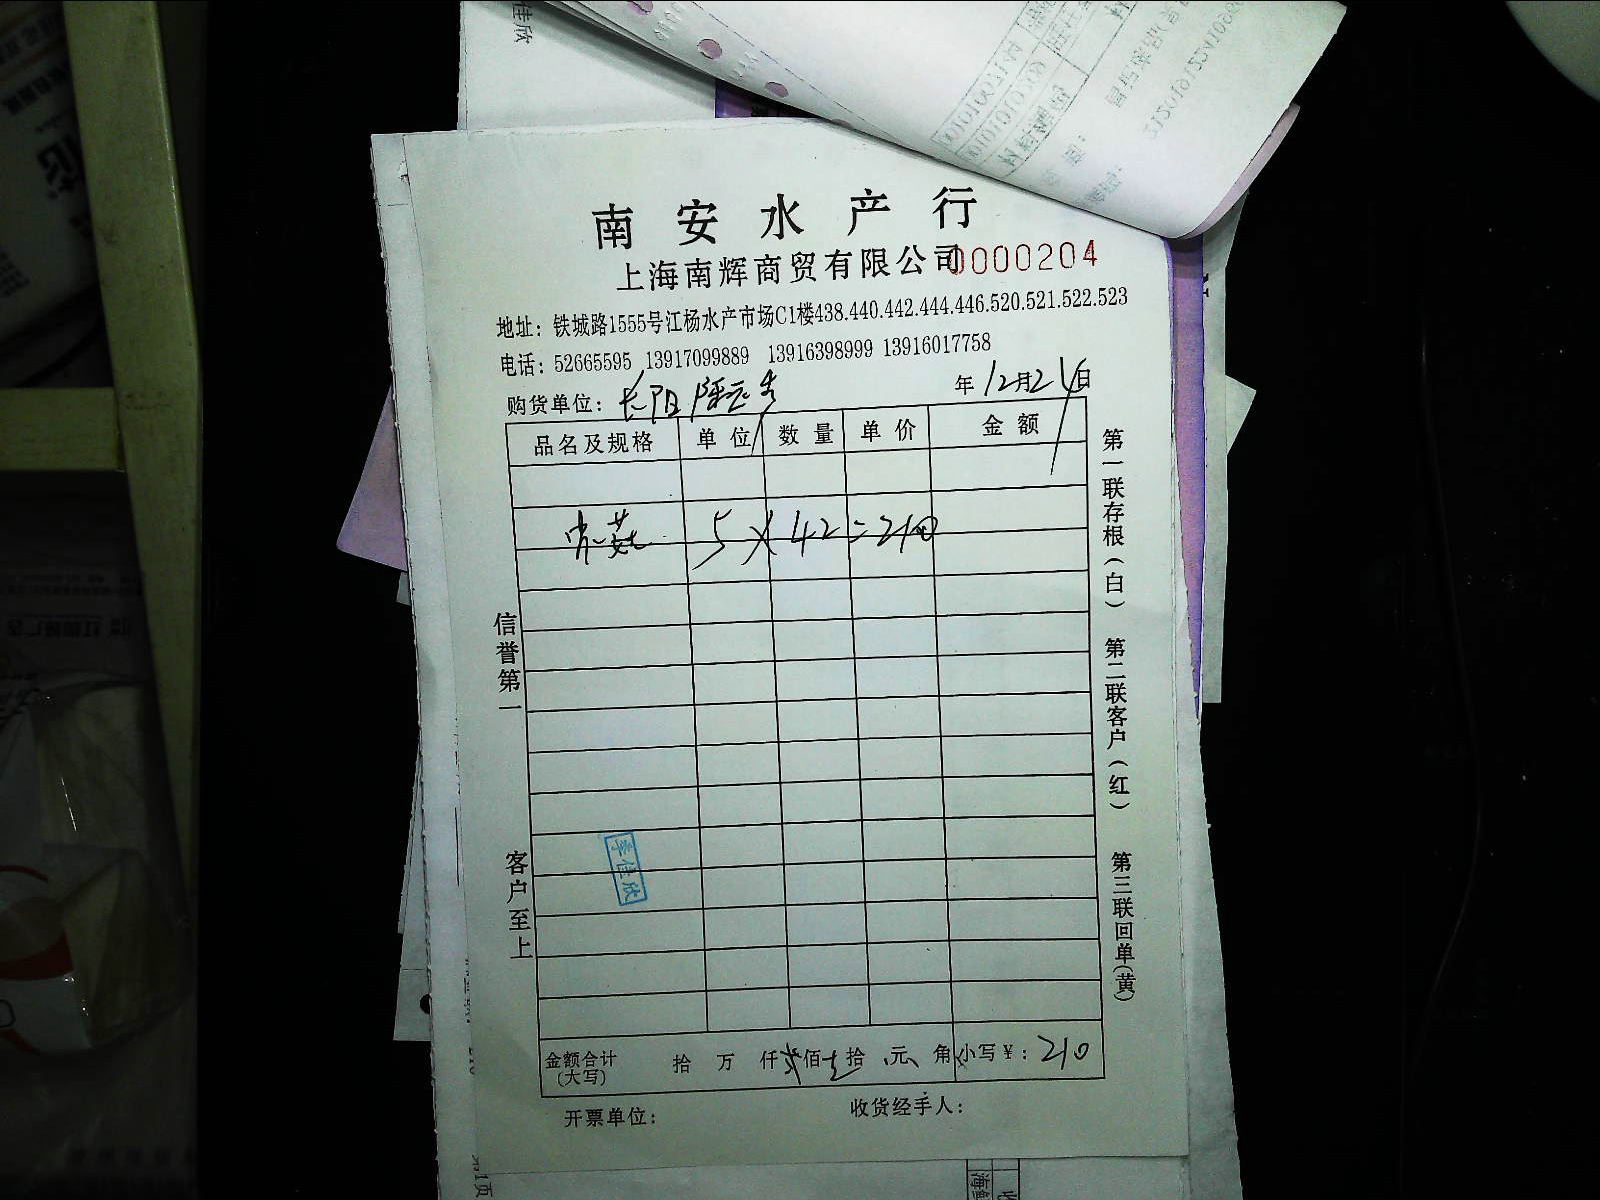 佳欣
南安水产行
上海南辉商贸有限公司0000204
地址：铁城路1555号江杨水产市场C1楼438.440.442.444.446.520.521.522.523
电话：52665595 13917099889 13916398999 13916017758
购货单位：长阳
年12月2 日
品名及规格 单位 数量 单价 金额
5×42=210
信誉第一
客户至上
第一联存根（白） 第二联客户（红） 第三联回单（黄）
李佳欣
金额合计（大写） 拾 万 仟贰佰壹拾 元 角 小写￥：210
开票单位： 收货经手人：
第1页